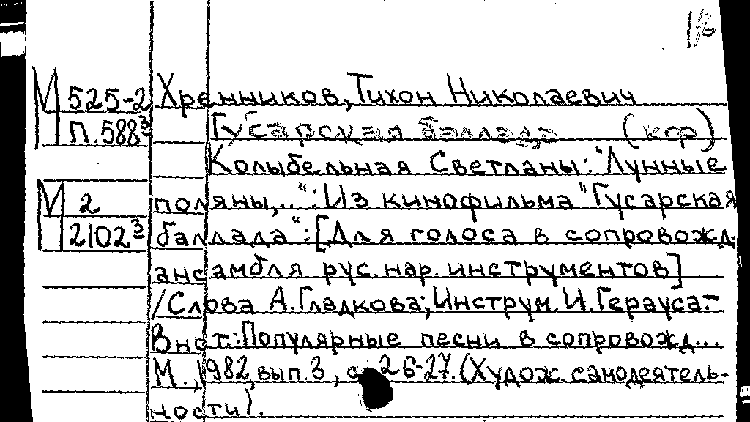 М 525-2 Хренников, Тихон Николаевич
П.588³ Гусарская баллада (кгр)
Колыбельная Светланы: "Лунные
М 2 поляны,..": Из кинофильма "Гусарская
2102³ баллада": [Для голоса в сопровожд.
ансамбля рус. нар. инструментов]
/Слова А. Гладкова; Инструм. И. Герауса.-
В нот.: Популярные песни в сопровожд...
М., 1982, вып. 3, с. 26-27. (Худож. самодеятель-
ности).